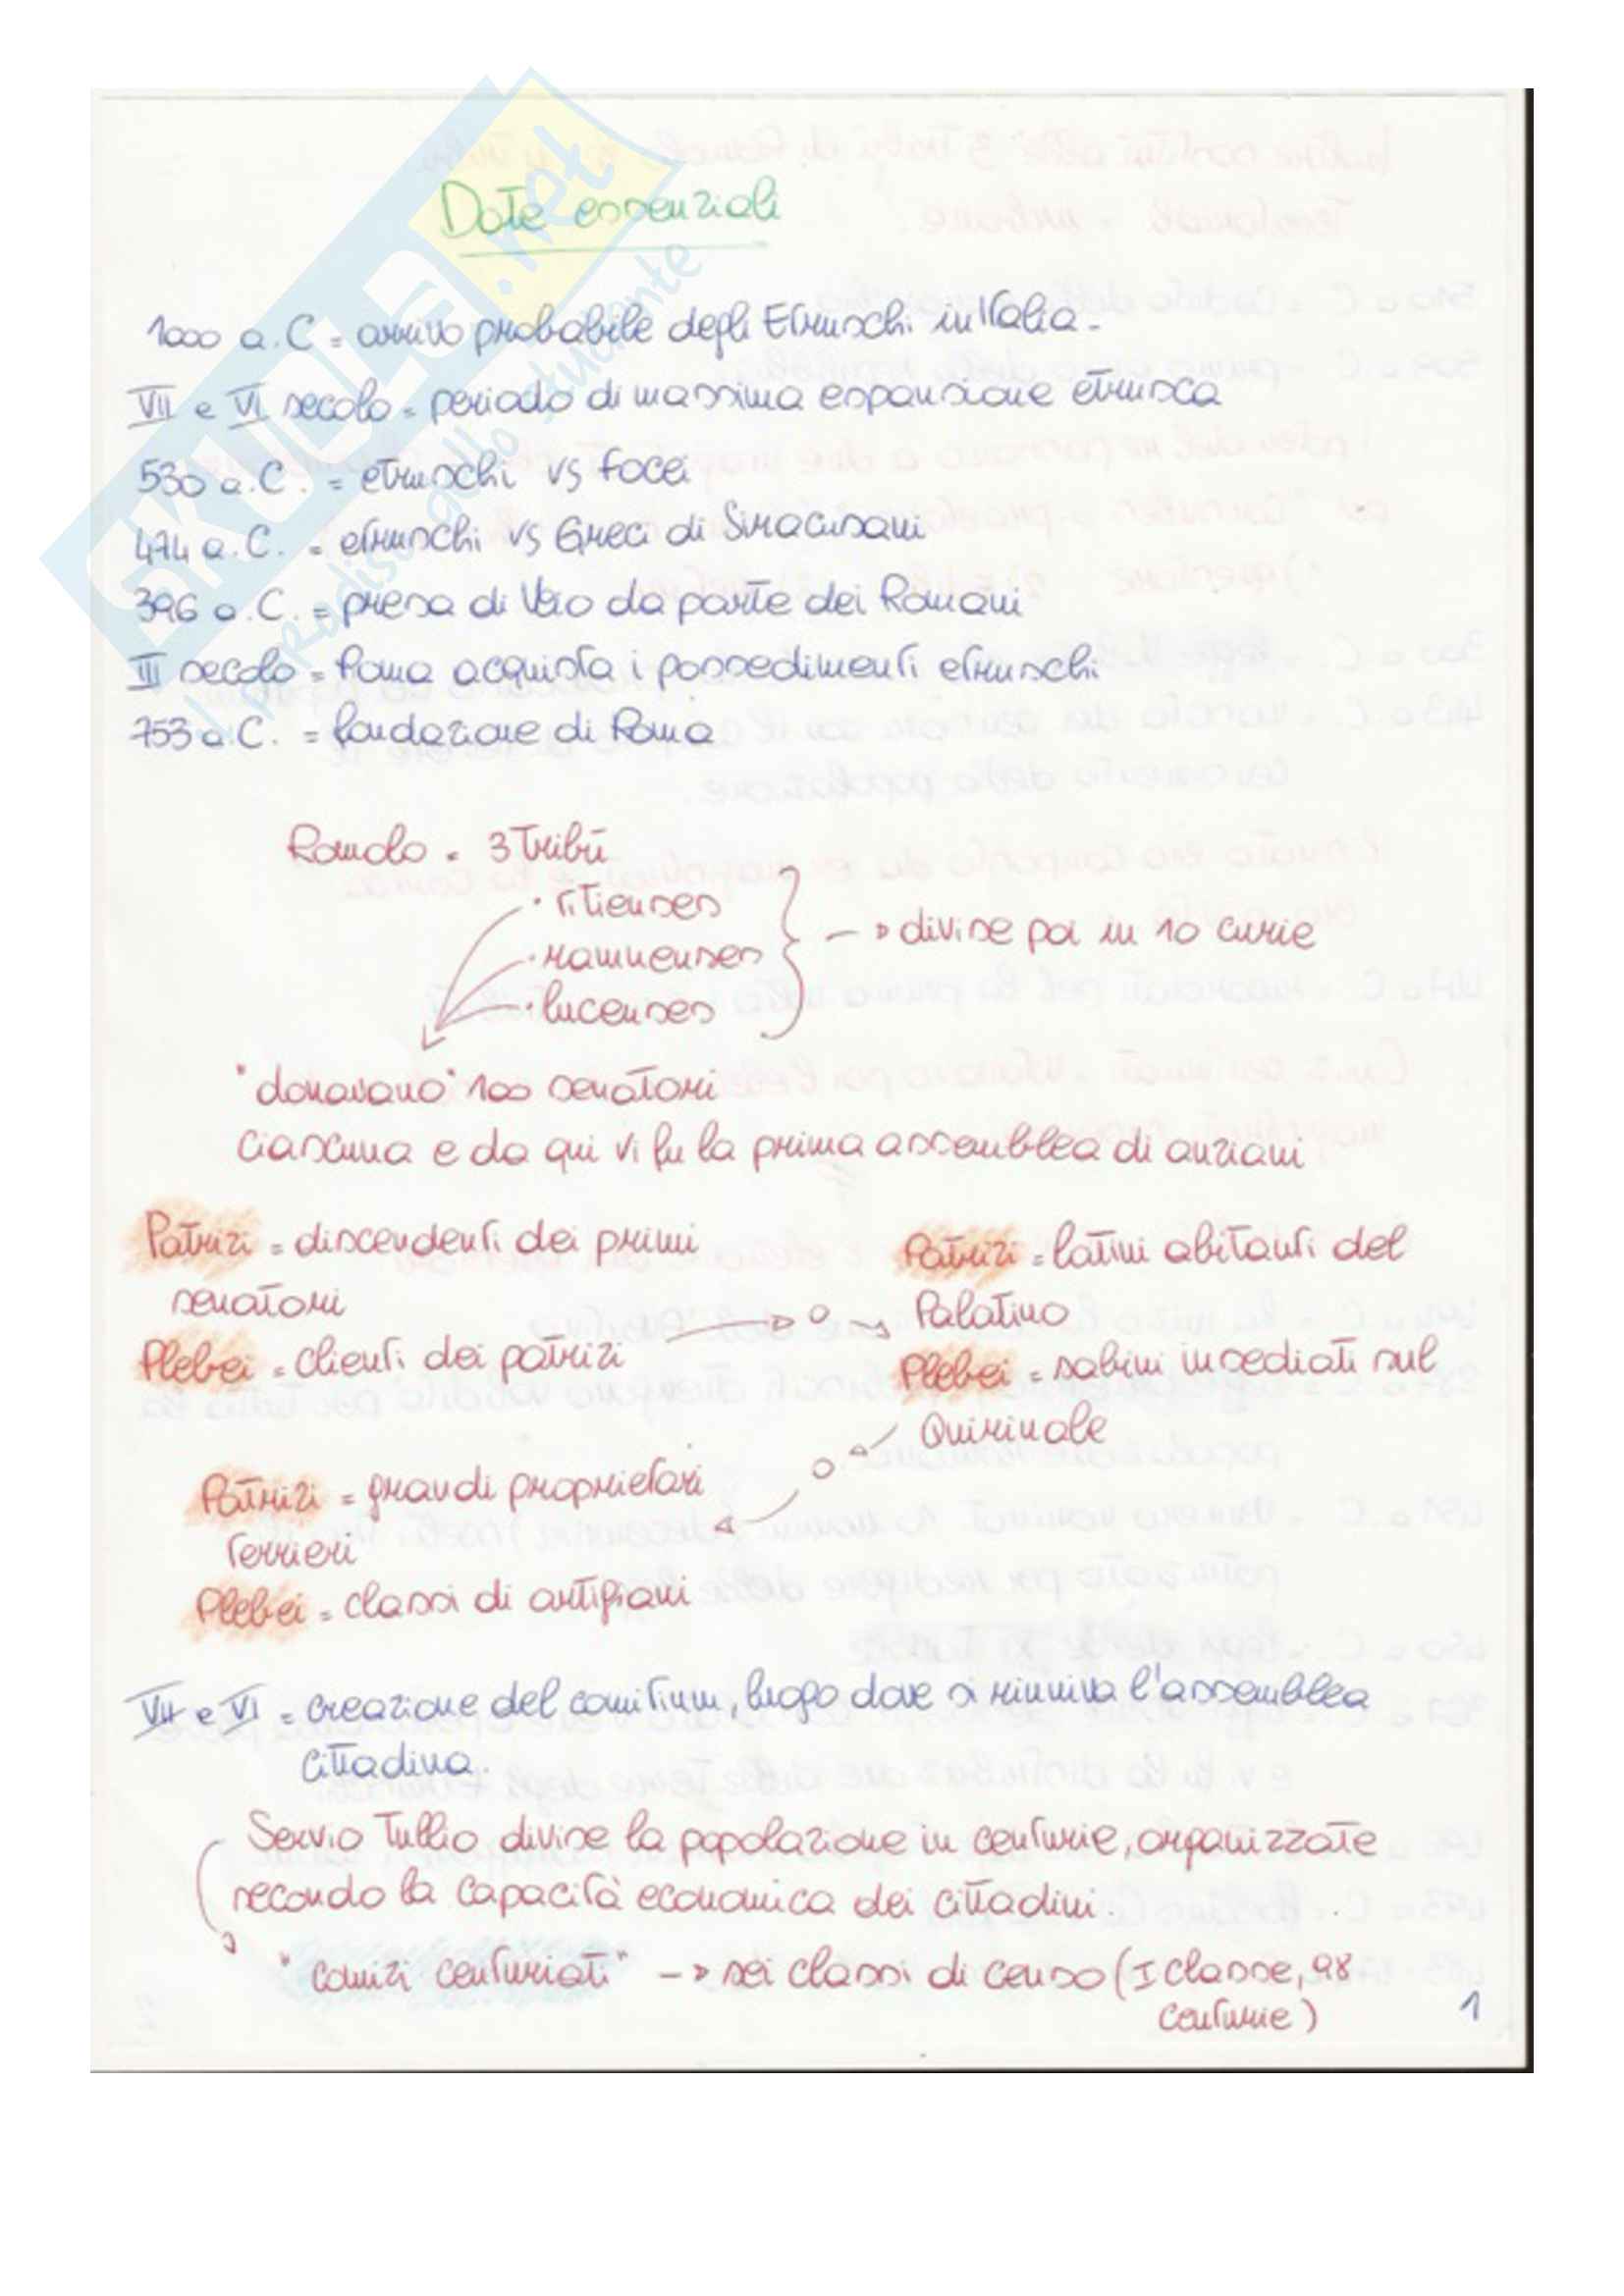 SKUOLA.net
paradiso dello studente
Date essenziali
1000 a.C = arrivo probabile degli Etruschi in Italia.
VII e VI secolo = periodo di massima espansione etrusca
530 a.C. = etruschi vs focei
474 a.C. = etruschi vs Greci di Siracusani
396 a.C. = presa di Veio da parte dei Romani
III secolo = Roma acquista i possedimenti etruschi
753 a.C. = fondazione di Roma
Romolo = 3 tribù
· titienses
· ramnenses
· lucenses
→ divise poi in 10 curie
"donavano" 100 senatori
ciascuna e da qui vi fu la prima assemblea di anziani
Patrizi = discendenti dei primi
senatori
Plebei = clienti dei patrizi
Patrizi = latini abitanti del
Palatino
Plebei = sabini insediati sul
Quirinale
Patrizi = grandi proprietari
terrieri
Plebei = classi di artigiani
VII e VI = creazione del comitium, luogo dove si riuniva l'assemblea
cittadina.
Servio Tullio divise la popolazione in centurie, organizzate
secondo la capacità economica dei cittadini.
"comizi centuriati" → sei classi di censo (I classe, 98
centurie)
1